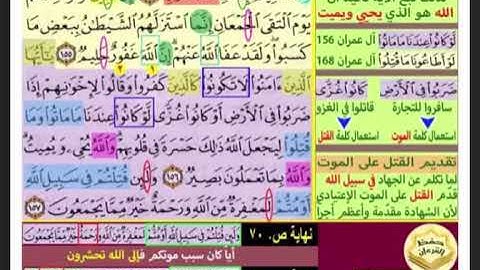 هو الذي يحيي ويميت
يَوْمَ ٱلْتَقَى ٱلْجَمْعَانِ إِنَّمَا ٱسْتَزَلَّهُمُ ٱلشَّيْطَـٰنُ بِبَعْضِ مَا
كَسَبُوا۟ وَلَقَدْ عَفَا ٱللَّهُ عَنْهُمْ إِنَّ ٱللَّهَ غَفُورٌ حَلِيمٌ ١٥٥ يَـٰٓأَيُّهَا
ٱلَّذِينَ ءَامَنُوا۟ لَا تَكُونُوا۟ كَٱلَّذِينَ كَفَرُوا۟ وَقَالُوا۟ لِإِخْوَٰنِهِمْ إِذَا
ضَرَبُوا۟ فِى ٱلْأَرْضِ أَوْ كَانُوا۟ غُزًّى لَّوْ كَانُوا۟ عِندَنَا مَا مَاتُوا۟ وَمَا
قُتِلُوا۟ لِيَجْعَلَ ٱللَّهُ ذَٰلِكَ حَسْرَةً فِى قُلُوبِهِمْ وَٱللَّهُ يُحْىِۦ وَيُمِيتُ
وَٱللَّهُ بِمَا تَعْمَلُونَ بَصِيرٌ ١٥٦ وَلَئِن قُتِلْتُمْ فِى سَبِيلِ ٱللَّهِ
أَوْ مُتُّمْ لَمَغْفِرَةٌ مِّنَ ٱللَّهِ وَرَحْمَةٌ خَيْرٌ مِّمَّا يَجْمَعُونَ ١٥٧
لَّوْ كَانُوا۟ عِندَنَا مَا مَاتُوا۟ آل عمران 156
لَوْ أَطَاعُونَا مَا قُتِلُوا۟ آل عمران 168
ضَرَبُوا۟ فِى ٱلْأَرْضِ أَوْ كَانُوا۟ غُزًّى
سافروا للتجارة قاتلوا في الغزو
استعمال كلمة الموت استعمال كلمة القتل
تقديم القتل على الموت
لما تكلم عن الجهاد في سبيل الله
قدّم القتل على الموت الإعتيادي
لأن الشهادة مقدمة وأعظم أجرا
وَلَئِن قُتِلْتُمْ فِى سَبِيلِ ٱللَّهِ أَوْ مُتُّمْ لَمَغْفِرَةٌ مِّنَ ٱللَّهِ وَرَحْمَةٌ خَيْرٌ مِّمَّا يَجْمَعُونَ
نهاية ص. ٧٠
أيا كان سبب موتكم فإلى الله تحشرون